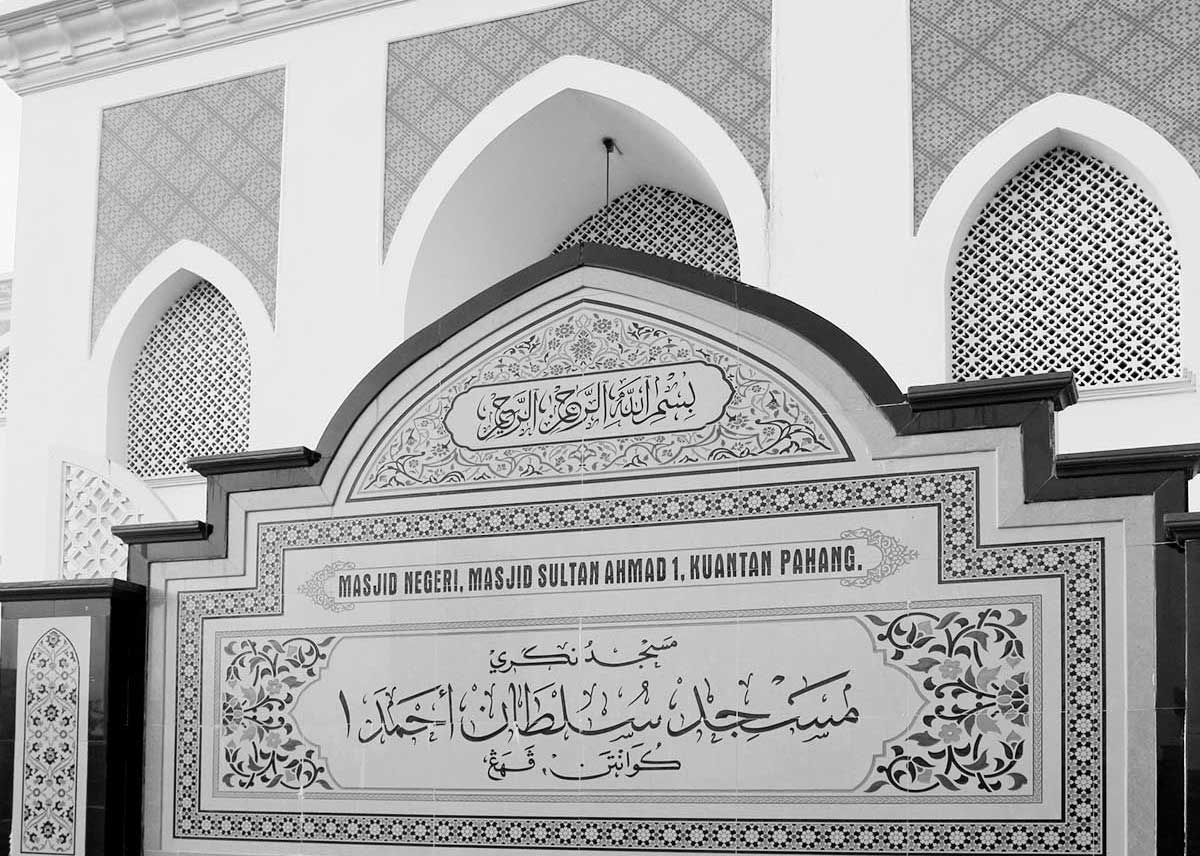 بِسْمِ اللَّهِ الرَّحْمَٰنِ الرَّحِيمِ
MASJID NEGERI, MASJID SULTAN AHMAD 1, KUANTAN PAHANG.
مَسْجِدُ نݢري
مَسْجِدْ سُلْطَانْ أَحْمَدْ ١
كُوَانْتَنْ, ڤَهَڠْ